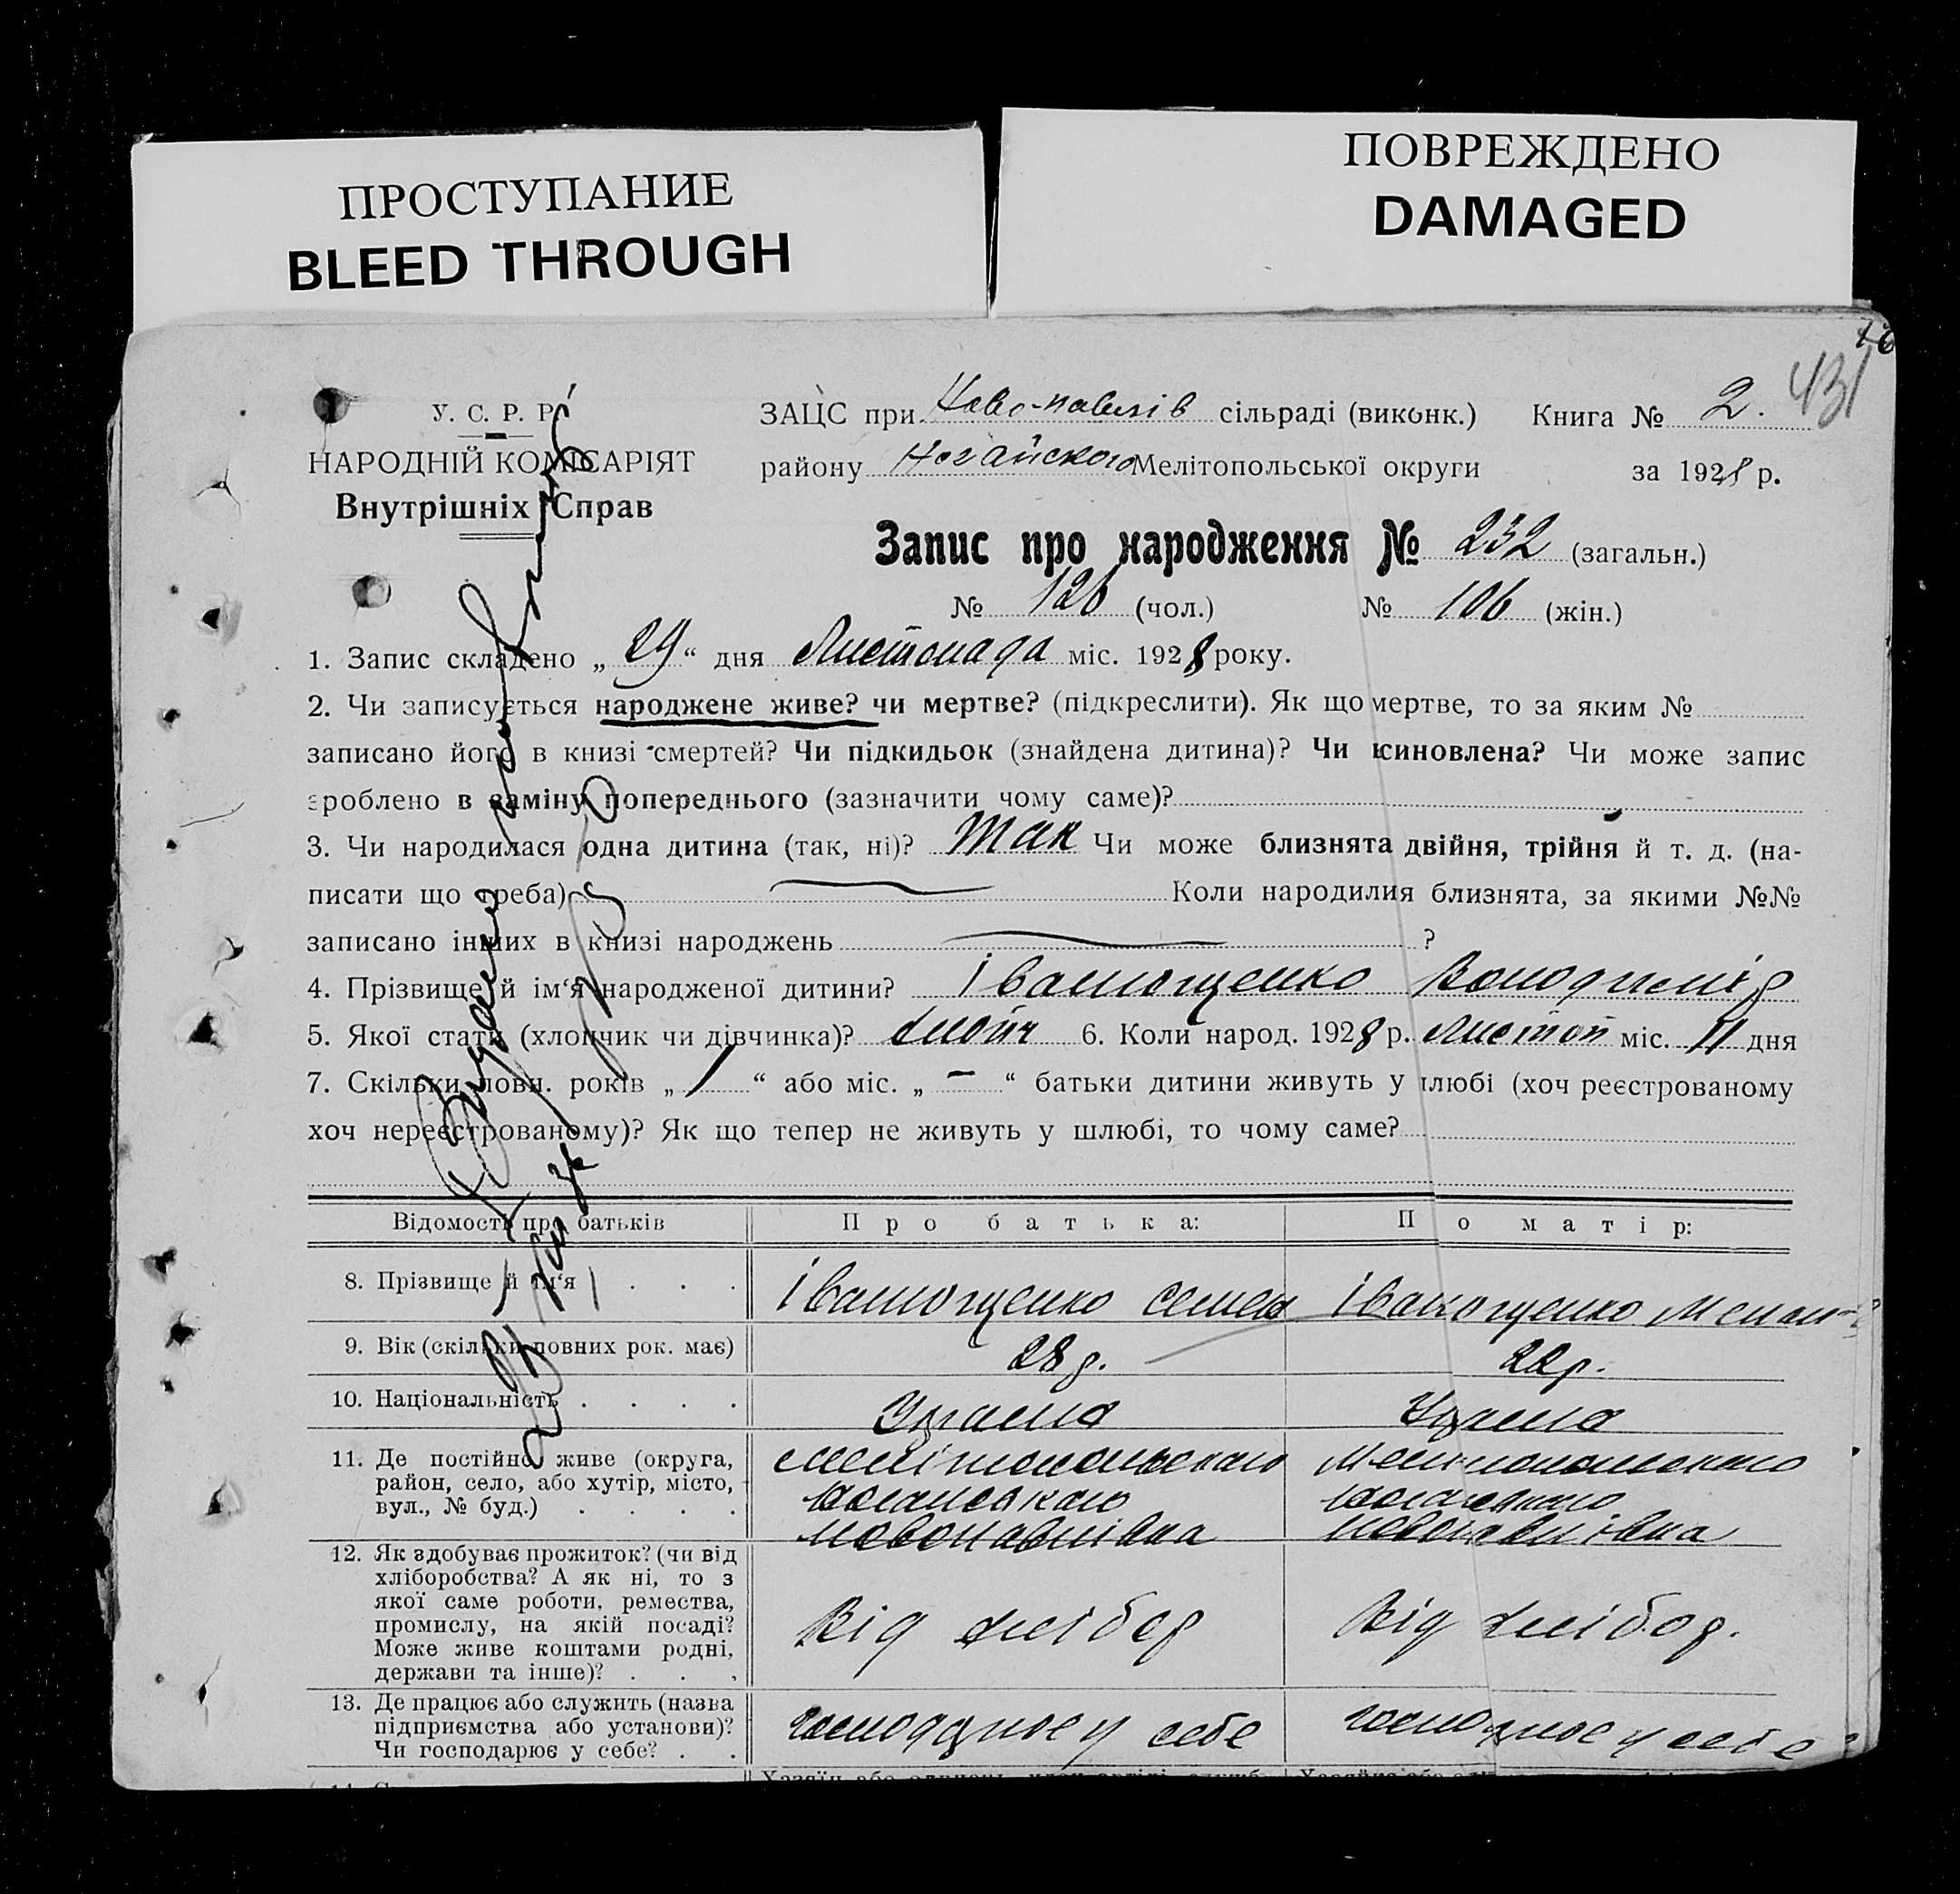 ПРОСТУПАНИЕ
BLEED THROUGH
ПОВРЕЖДЕНО
DAMAGED
431
У. С. Р. Р.
НАРОДНІЙ КОМІСАРІЯТ
Внутрішніх Справ
ЗАЦС при Ново-павлів сільраді (виконк.) Книга № 2.
району Ногайского Мелітопольської округи за 1928 р.
Запис про народження № 232 (загальн.)
№ 126 (чол.) № 106 (жін.)
1. Запис складено „ 29 “ дня Листопада міс. 1928 року.
2. Чи записується народжене живе? чи мертве? (підкреслити). Як що мертве, то за яким №
записано його в книзі смертей? Чи підкидьок (знайдена дитина)? Чи усиновлена? Чи може запис
зроблено в заміну попереднього (зазначити чому саме)?
3. Чи народилася одна дитина (так, ні)? Так Чи може близнята двійня, трійня й т. д. (на-
писати що треба) Коли народилия близнята, за якими №№
записано інших в книзі народжень ?
4. Прізвище й ім‘я народженої дитини? Іванющенко Володимір
5. Якої стати (хлопчик чи дівчинка)? хлопч 6. Коли народ. 1928 р. Листоп міс. 11 дня
7. Скільки повн. років „ 1 “ або міс. „ – “ батьки дитини живуть у шлюбі (хоч реєстрованому
хоч нереєстрованому)? Як що тепер не живуть у шлюбі, то чому саме?
Відомость про батьків Про батька: По матір:
8. Прізвище й ім‘я . . . Іванющенко Семен Іванющенко
9. Вік (скільки повних рок. має) 28 р. 22 р.
10. Національність . . . . Украина Украина
11. Де постійно живе (округа, Мелітопольского Мелитопольского
район, село, або хутір, місто, Ногайського Ногайского
вул., № буд.) . . . . Новопавлівка Новопавлівка
12. Як здобуває прожиток? (чи від
хліборобства? А як ні, то з
якої саме роботи, ремества,
промислу, на якій посаді? Від хлібор Від хлібор.
Може живе коштами родні,
держави та інше)? . . .
13. Де працює або служить (назва
підприємства або установи)? господрює у себе господрює у себе
Чи господарює у себе? . .